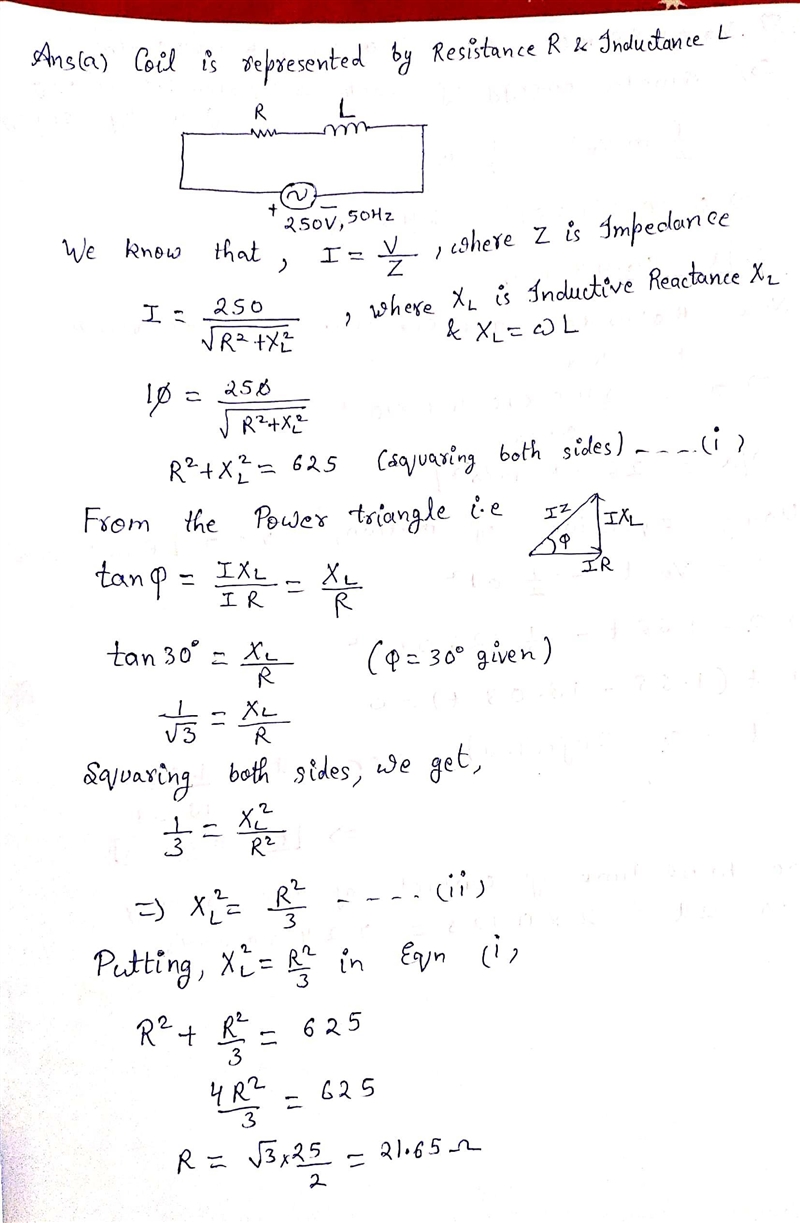 Ans(a) Coil is represented by Resistance R & Inductance L.
R L
+ −
250V, 50Hz
We know that, I = V/Z, where Z is Impedance
I = 250/√(R²+X_L²), where X_L is Inductive Reactance X_L
& X_L = ωL
10 = 250/√(R²+X_L²)
R²+X_L² = 625 (squaring both sides) ---- (i)
From the Power triangle i.e
IZ IX_L
φ
IR
tan φ = IX_L/IR = X_L/R
tan 30° = X_L/R (φ = 30° given)
1/√3 = X_L/R
Squaring both sides, we get,
1/3 = X_L²/R²
=> X_L² = R²/3 ----- (ii)
Putting, X_L² = R²/3 in Eqn (i)
R² + R²/3 = 625
4R²/3 = 625
R = √3×25/2 = 21.65 Ω